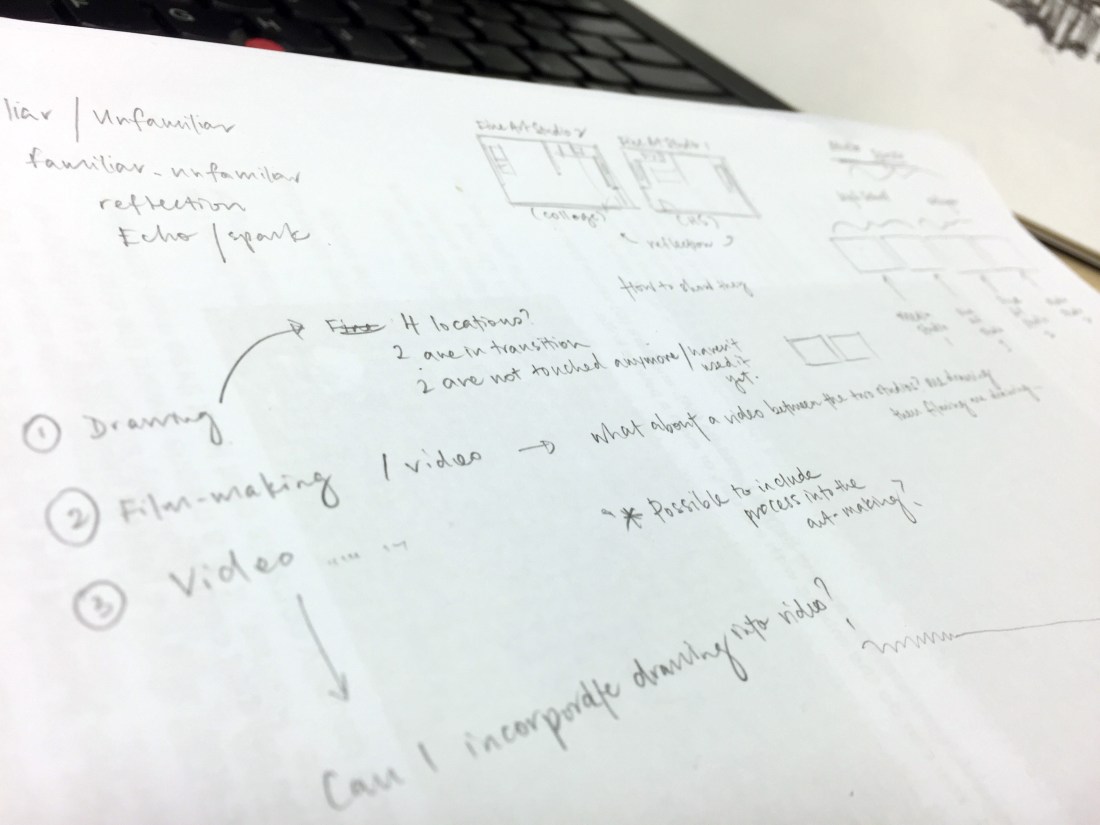 liar / Unfamiliar
familiar - unfamiliar
reflection
Echo / spark
Fine Art Studio 2
Fine Art Studio 1
(collage)
(HS)
reflection
How to show they
Fine 4 locations?
2 are in transition
2 are not touched anymore / haven't
used it
yet.
① Drawing
② Film-making / video → what about a video between the two studios? drawing
filming me drawing
* Possible to include
process into the
art-making?
③ Video ..... ...
Can I incorporate drawing into video?